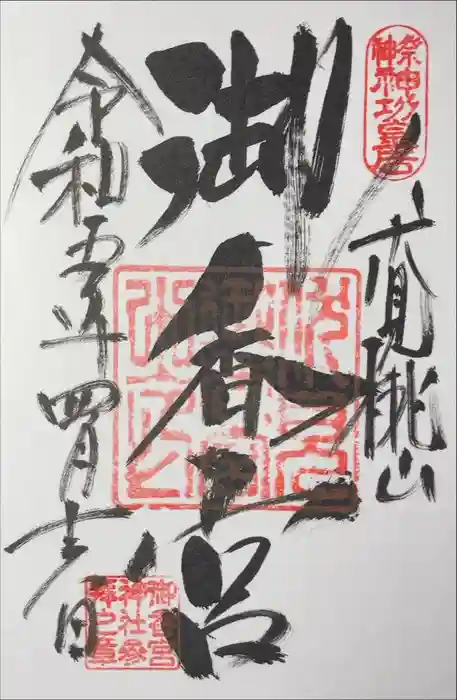 祭神神功皇后
伏見桃山
御香宮
令和五年四月吉日
御香宮
神社参
拝之章